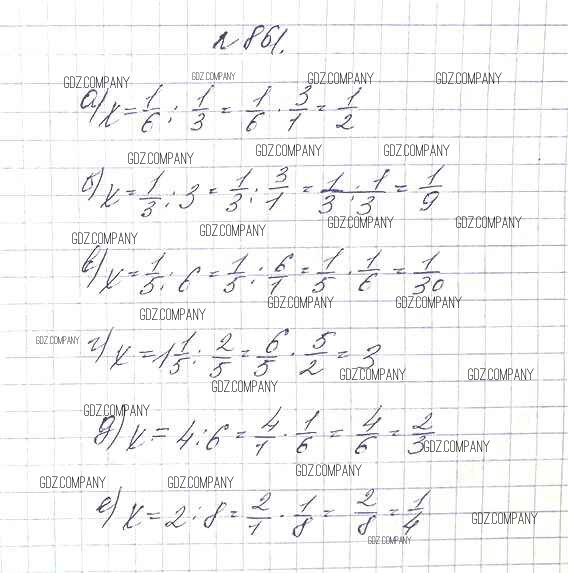 №861.
GDZ.COMPANY GDZ.COMPANY GDZ.COMPANY GDZ.COMPANY
а) x = 1/6 : 1/3 = 1/6 · 3/1 = 1/2
GDZ.COMPANY GDZ.COMPANY GDZ.COMPANY
б) x = 1/3 : 3 = 1/3 : 3/1 = 1/3 · 1/3 = 1/9
GDZ.COMPANY GDZ.COMPANY GDZ.COMPANY GDZ.COMPANY
в) x = 1/5 : 6 = 1/5 : 6/1 = 1/5 · 1/6 = 1/30
GDZ.COMPANY GDZ.COMPANY GDZ.COMPANY
г) x = 1 1/5 : 2/5 = 6/5 · 5/2 = 3
GDZ.COMPANY GDZ.COMPANY GDZ.COMPANY GDZ.COMPANY
GDZ.COMPANY
д) x = 4 : 6 = 4/1 · 1/6 = 4/6 = 2/3
GDZ.COMPANY
GDZ.COMPANY GDZ.COMPANY GDZ.COMPANY
е) x = 2 : 8 = 2/1 · 1/8 = 2/8 = 1/4
GDZ.COMPANY GDZ.COMPANY